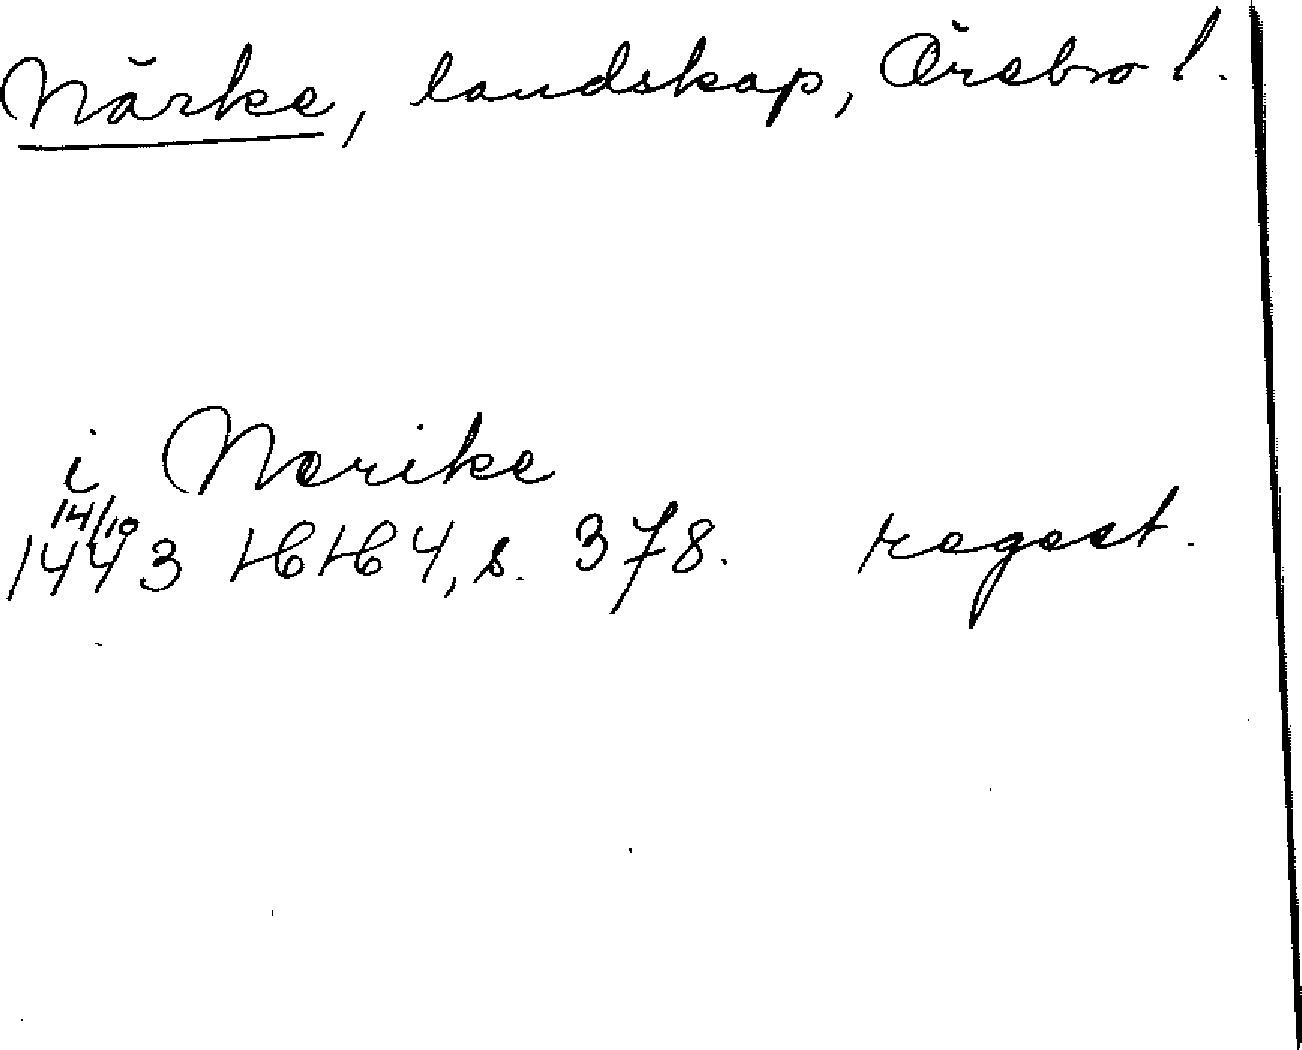 Närke, landskap, Örebro l.
i Nerike
14/10
1443 HH 4, s. 378. regest.